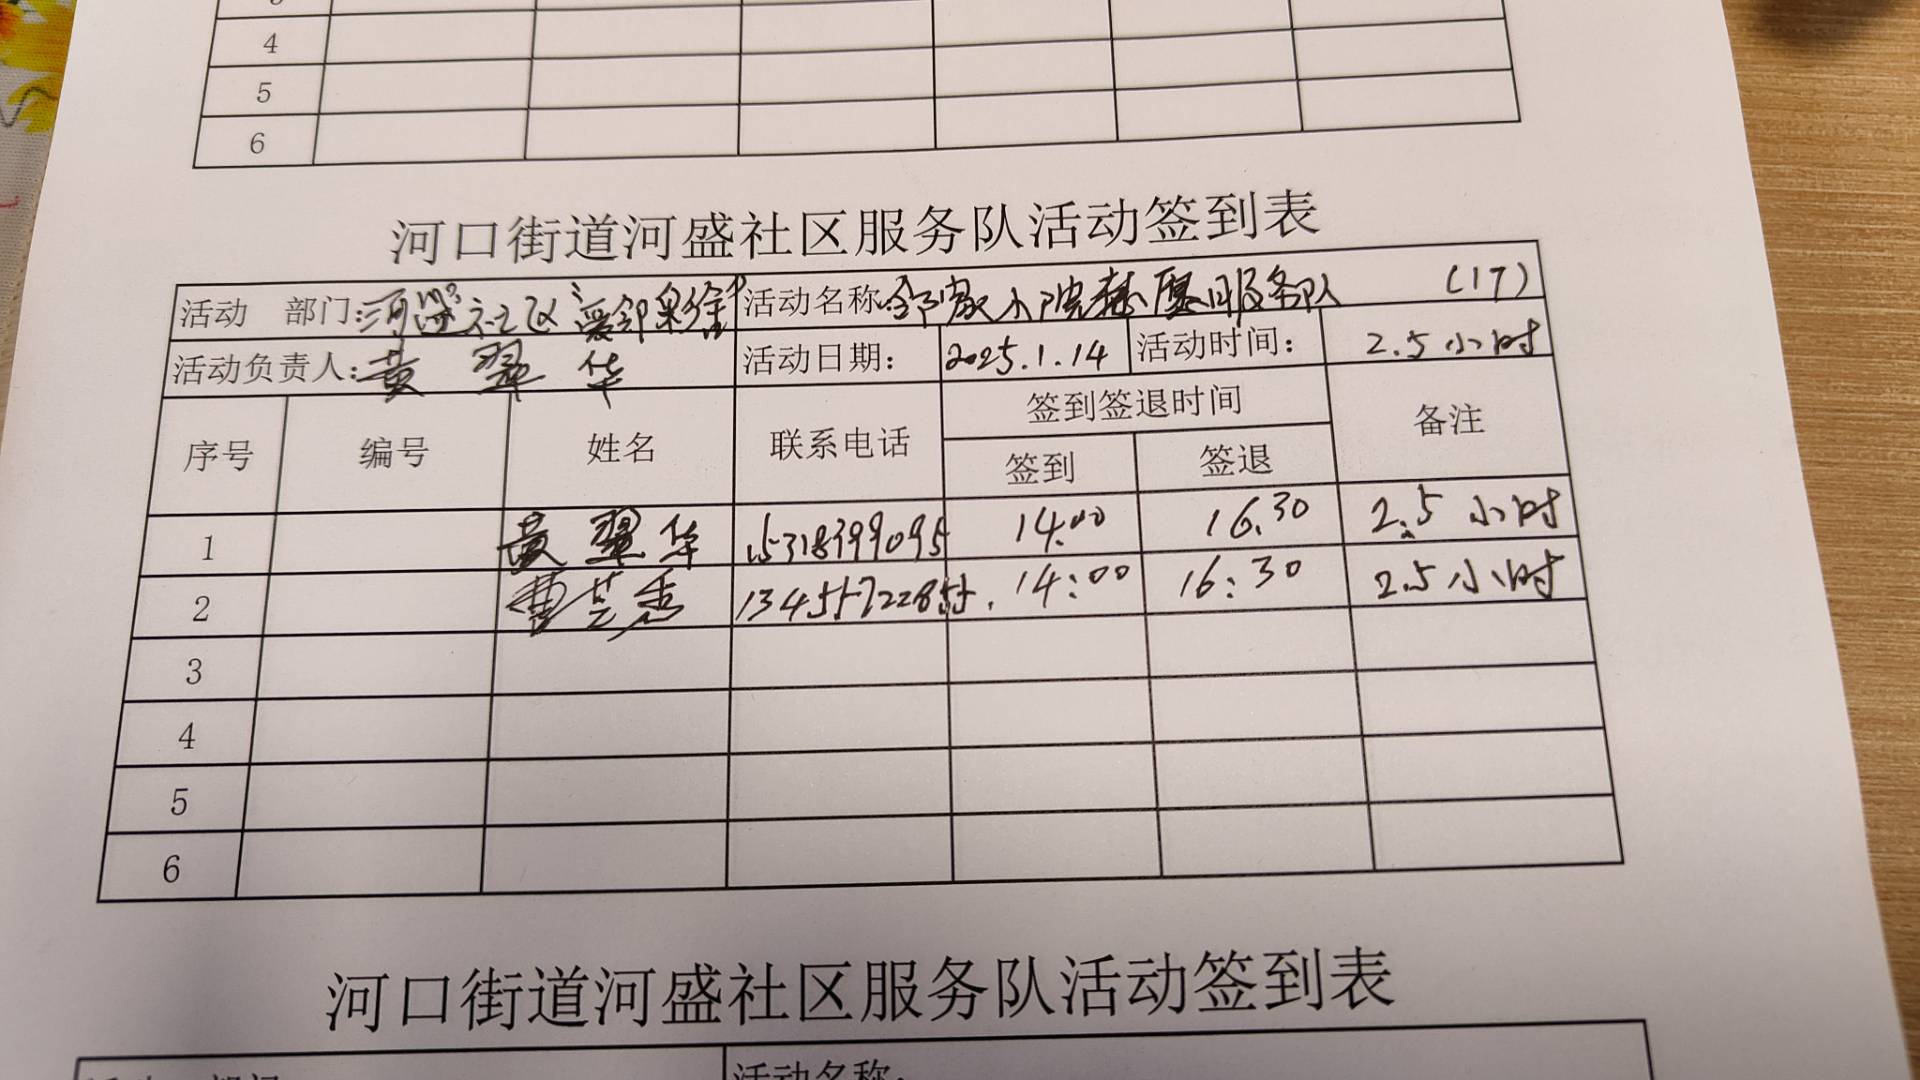 4
5
6
河口街道河盛社区服务队活动签到表
活动 部门:河盛社区爱邻 活动名称 小院 服务队 (17)
活动负责人:黄翠华 活动日期: 2025.1.14 活动时间: 2.5小时
序号 编号 姓名 联系电话 签到签退时间 备注
签到 签退
1 黄翠华 15318399095 14:00 16:30 2.5小时
2 曹芸香 13455722855 14:00 16:30 2.5小时
3
4
5
6
河口街道河盛社区服务队活动签到表
活动名称: